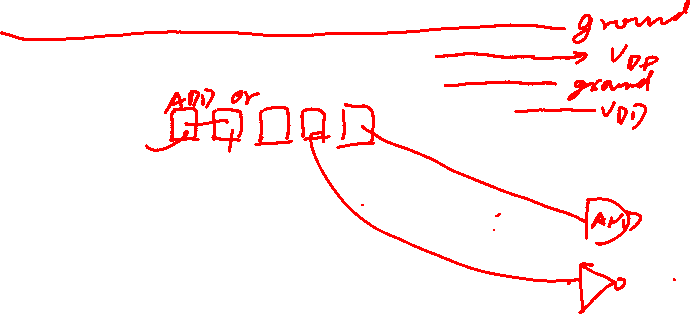 ground
VDD
ground
VDD
ADD or
AND